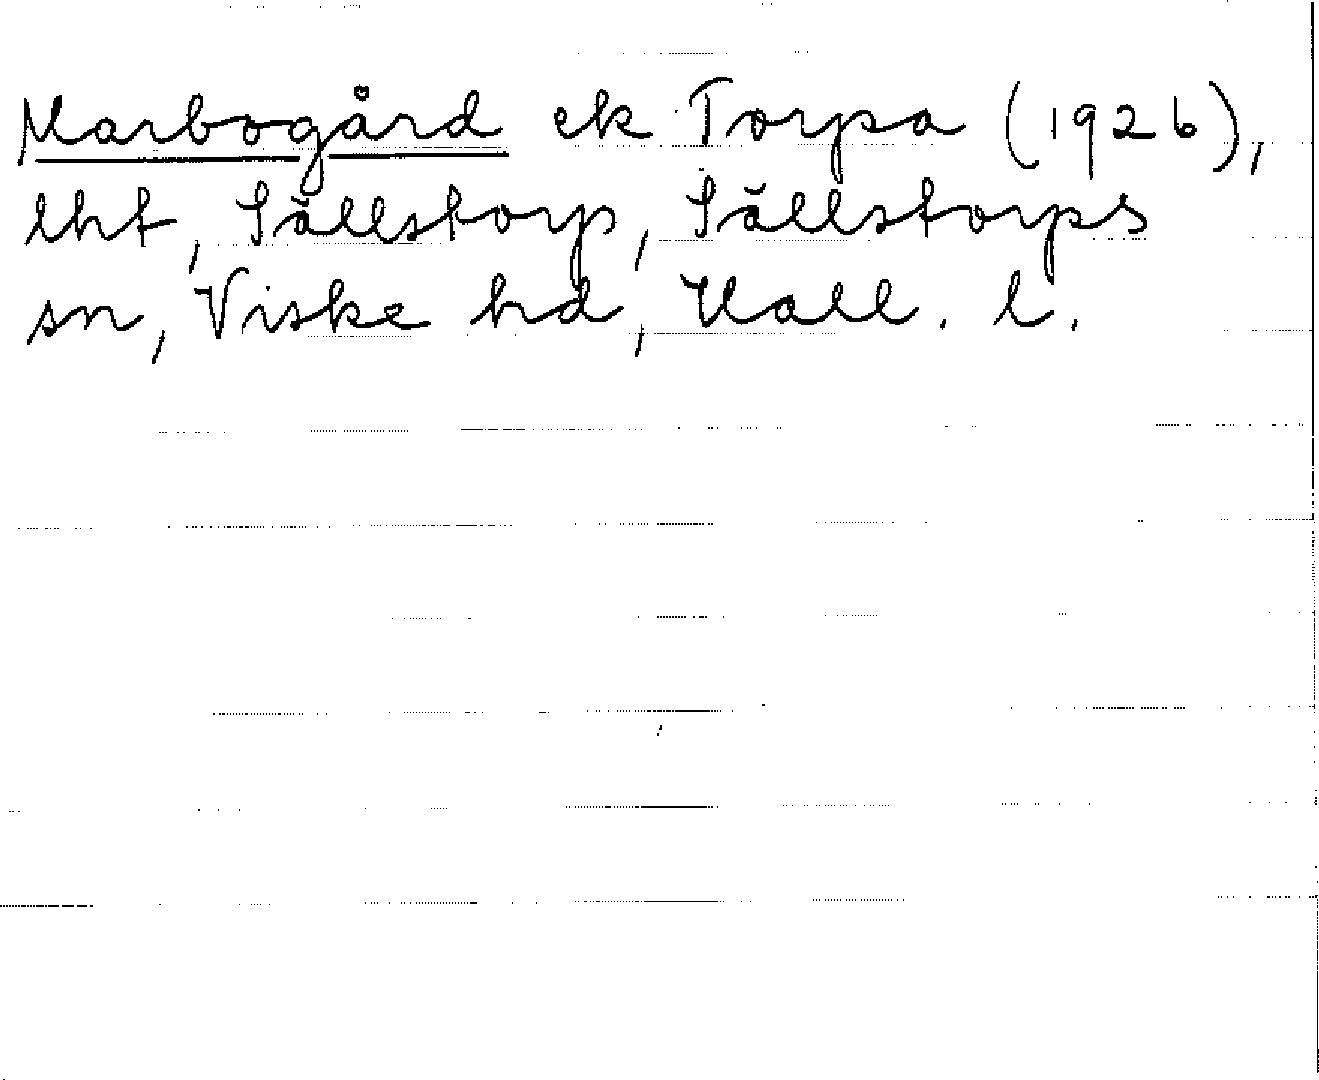 Marbogård ek Torpa (1926),
lht, Sällstorp, Sällstorps
sn, Viske hd, Hall. l.